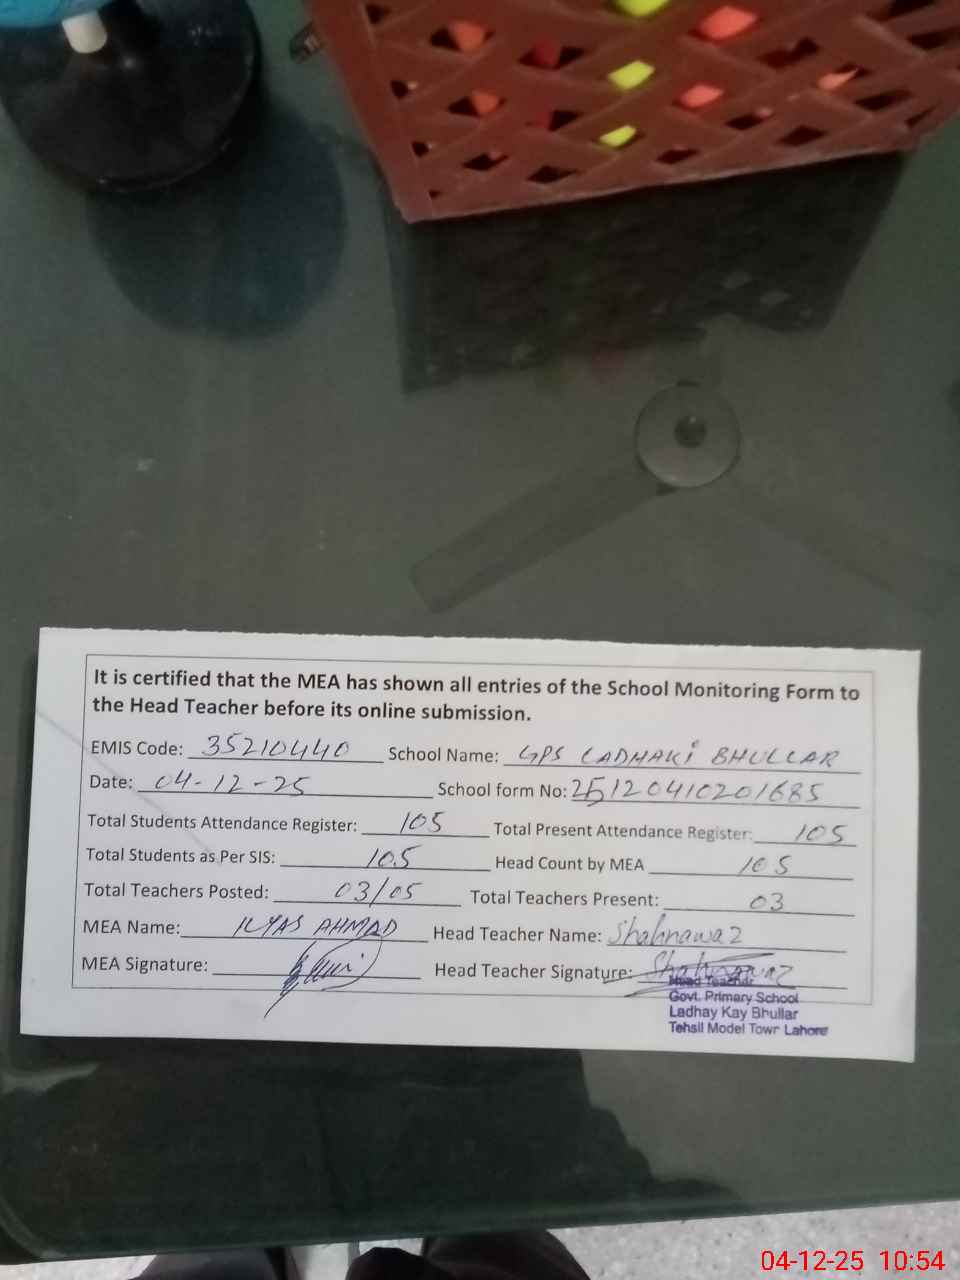 It is certified that the MEA has shown all entries of the School Monitoring Form to
the Head Teacher before its online submission.
EMIS Code: 35210440 School Name: GPS LADHAKi BHULLAR
Date: 04-12-25 School form No: 25120410201685
Total Students Attendance Register: 105 Total Present Attendance Register: 105
Total Students as Per SIS: 105 Head Count by MEA 105
Total Teachers Posted: 03/05 Total Teachers Present: 03
MEA Name: ILYAS AHMAD Head Teacher Name: Shahnawaz
MEA Signature: Head Teacher Signature: Shahnawaz
Head Teacher
Govt. Primary School
Ladhay Kay Bhullar
Tehsil Model Town Lahore
04-12-25 10:54